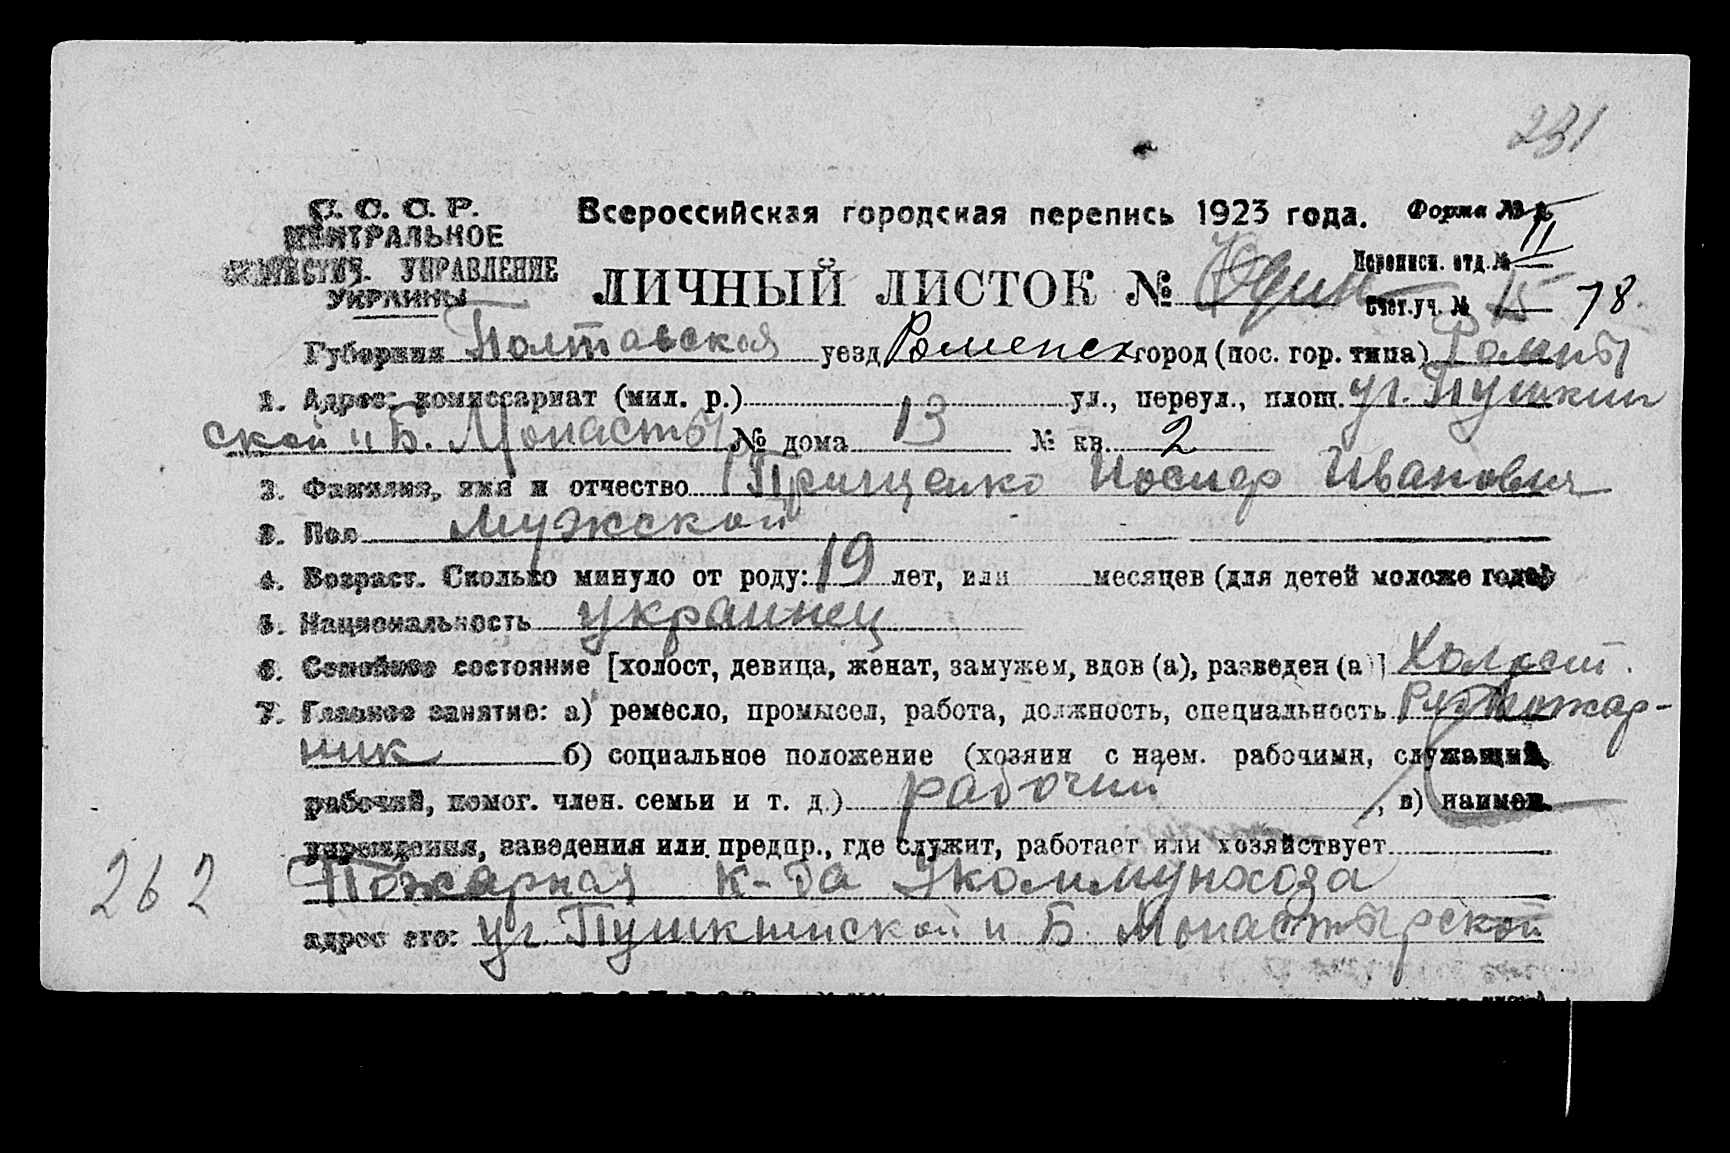 231
С. С. С. Р.
ЦЕНТРАЛЬНОЕ
СТАТИСТИЧ. УПРАВЛЕНИЕ
УКРАИНЫ
Всероссийская городская перепись 1923 года.
Форма №
II
ЛИЧНЫЙ ЛИСТОК № Один
Переписн. отд. №
Счет. уч. № 15 78.
Губерния Полтавская уезд Роменск город (пос. гор. типа) Ромны
1. Адрес: комиссариат (мил. р.) ул., переул., площ. уг. Пушкин
ской и Б. Монасты № дома 13 № кв. 2
2. Фамилия, имя и отчество Прищенко Иосиф Иванович
3. Пол мужской
4. Возраст. Сколько минуло от роду: 19 лет, или месяцев (для детей моложе года)
5. Национальность украинец
6. Семейное состояние [холост, девица, женат, замужем, вдов (а), разведен (а)] Холост.
7. Главное занятие: а) ремесло, промысел, работа, должность, специальность Пожар-
ник б) социальное положение (хозяин с наем. рабочими, служащий,
рабочий, помог. член. семьи и т. д.) рабочий, в) наимен.
учреждения, заведения или предпр., где служит, работает или хозяйствует
Пожарная к-да Укоммунхоза
262
адрес его: уг Пушкинской и Б. Монастырской